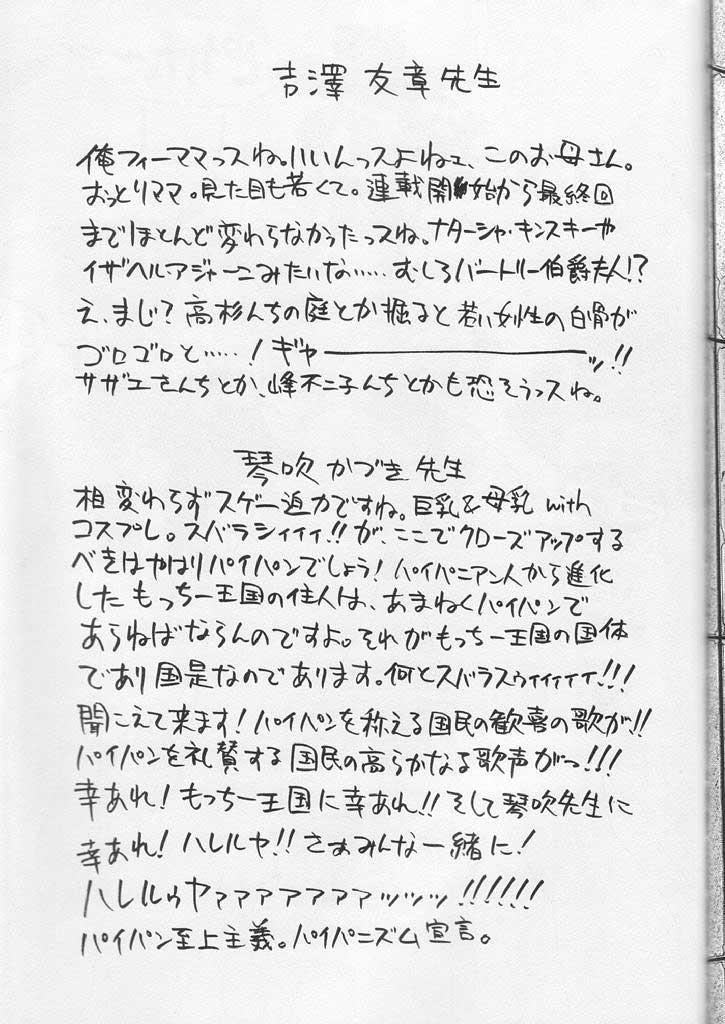 吉澤 友章先生
俺フィーママっスね。いいんっスよねェ、このお母さん。
おっとりママ。見た目も若くて。連載開始から最終回
までほとんど変わらなかったっスね。ナターシャ・キンスキーや
イザヘル・アジャーニみたいな……むしろバートリー伯爵夫人!?
え、まじ?高杉んちの庭とか掘ると若い女性の白骨が
ゴロゴロと……!ギャ――――――ッ!!
サザエさんちとか、峰不二子んちとかも恐そうっスね。
琴吹かづき先生
相変わらずスゲー迫力ですね。巨乳&母乳with
コスプレ。スバラシィィィ!!が、ここでクローズアップする
べきはやはりパイパンでしょう!パイパニアン人から進化
したもっちー王国の住人は、あまねくパイパンで
あらねばならんのですよ。それがもっちー王国の国体
であり国是なのであります。何とスバラスゥィィィィィ!!!
聞こえて来ます!パイパンを称える国民の歓喜の歌が!!
パイパンを礼賛する国民の高らかなる歌声がっ!!!
幸あれ!もっちー王国に幸あれ!!そして琴吹先生に
幸あれ!ハレルヤ!!さぁみんな一緒に!
ハレルゥヤァァァァァァァッッッ!!!!!!
パイパン至上主義。パイパニズム宣言。